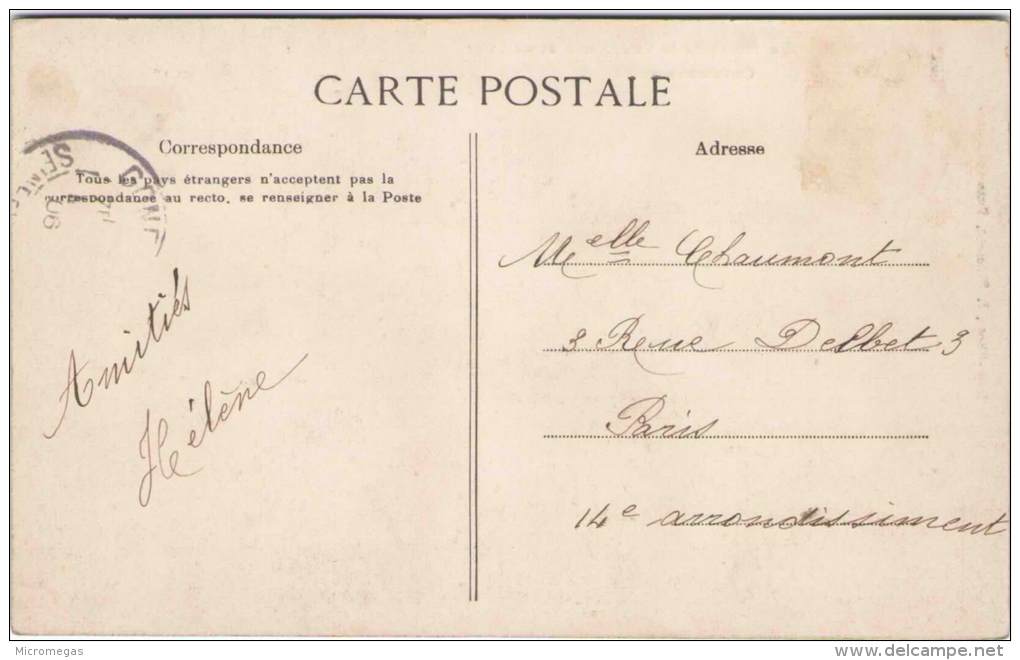 CARTE POSTALE
Correspondance
Tous les pays étrangers n'acceptent pas la
correspondance au recto, se renseigner à la Poste
Amitiés
Hélène
Adresse
Melle Chaumont
3 Rue Delbet 3
Paris
14e arrondissiment
SEINE
06
Micromegas
www.delcampe.net